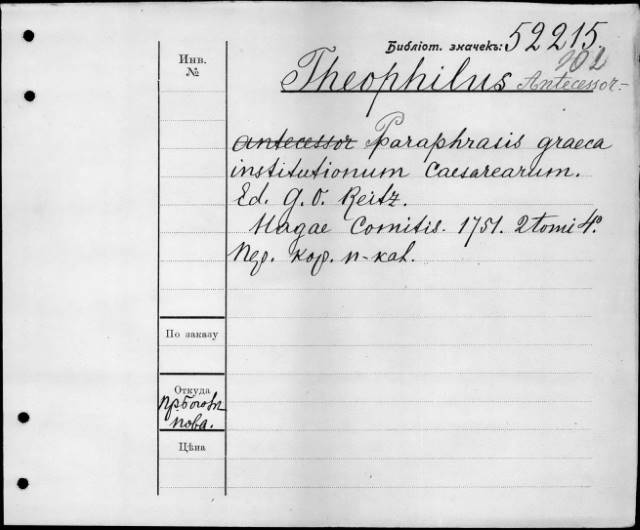 Библіот. значекъ: 52215.
202
Инв.
№
Theophilus Antecessor-
antecessor Paraphrasis graeca
institutionum caesarearum.
Ed. G. O. Reitz.
Hagae Comitis. 1751. 2 tomi 4°.
Пер. кор. п-каl.
По заказу
Откуда
Цѣна